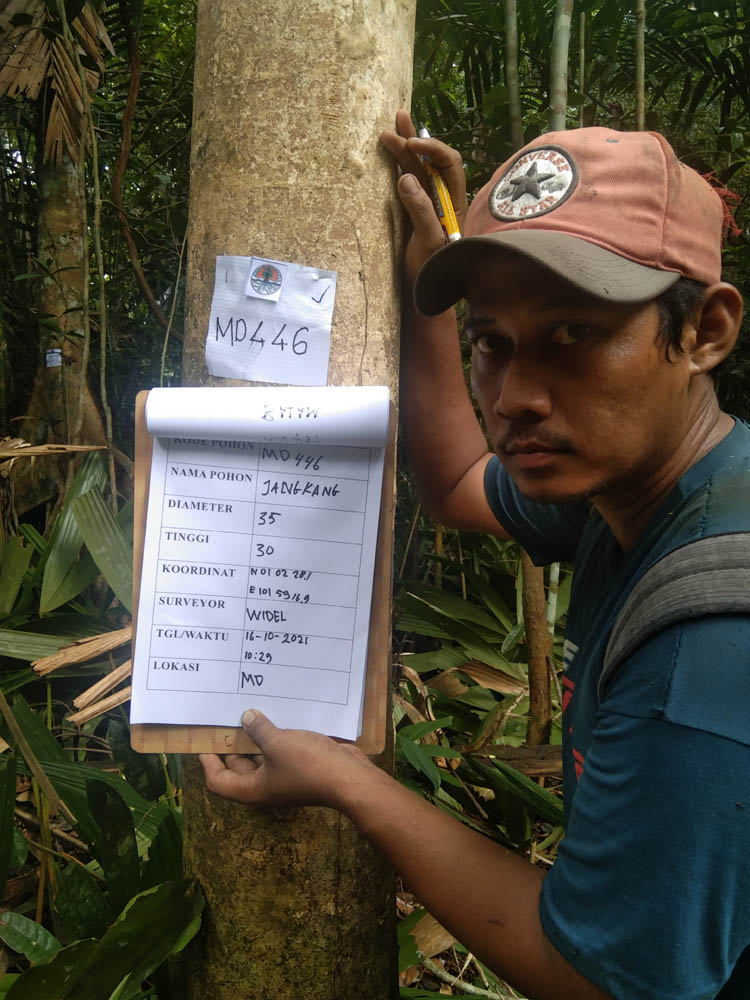 CONVERSE
ALL STAR
MD446
KODE POHON MD 446
NAMA POHON JANGKANG
DIAMETER 35
TINGGI 30
KOORDINAT N 01 02 28,1
E 101 59 16,9
SURVEYOR WIDEL
TGL/WAKTU 16-10-2021
10:29
LOKASI MD